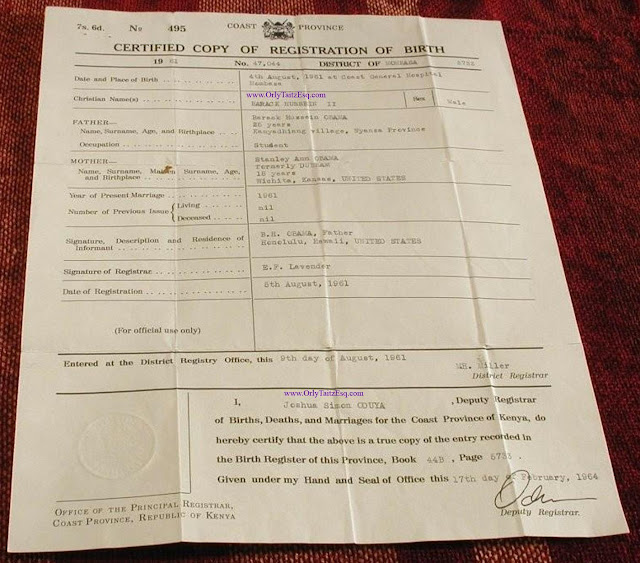 7s. 6d. No 495 COAST PROVINCE
www.OrlyTaitzEsq.com
CERTIFIED COPY OF REGISTRATION OF BIRTH
19 61 No. 47,044 DISTRICT OF MOMBASA 5733
Date and Place of Birth 4th August, 1961 at Coast General Hospital
Mombasa
www.OrlyTaitzEsq.com
Christian Name(s) BARACK HUSSEIN II Sex Male
FATHER— Barack Hussein OBAMA
Name, Surname, Age, and Birthplace 25 years
Kanyadhiang village, Nyanza Province
Occupation Student
MOTHER— Stanley Ann OBAMA
formerly DUNHAM
Name, Surname, Maiden Surname, Age, and Birthplace 18 years
Wichita, Kansas, UNITED STATES
Year of Present Marriage 1961
Number of Previous Issue Living nil
Deceased nil
Signature, Description and Residence of Informant B.H. OBAMA, Father
Honolulu, Hawaii, UNITED STATES
Signature of Registrar E.F. Lavender
Date of Registration 5th August, 1961
(For official use only)
Entered at the District Registry Office, this 9th day of August, 1961
MH. Miller
District Registrar
www.OrlyTaitzEsq.com
I, Joshua Simon ODUYA, Deputy Registrar
of Births, Deaths, and Marriages for the Coast Province of Kenya, do
hereby certify that the above is a true copy of the entry recorded in
the Birth Register of this Province, Book 44B, Page 5733.
Given under my Hand and Seal of Office this 17th day of February, 1964
Deputy Registrar.
OFFICE OF THE PRINCIPAL REGISTRAR,
COAST PROVINCE, REPUBLIC OF KENYA